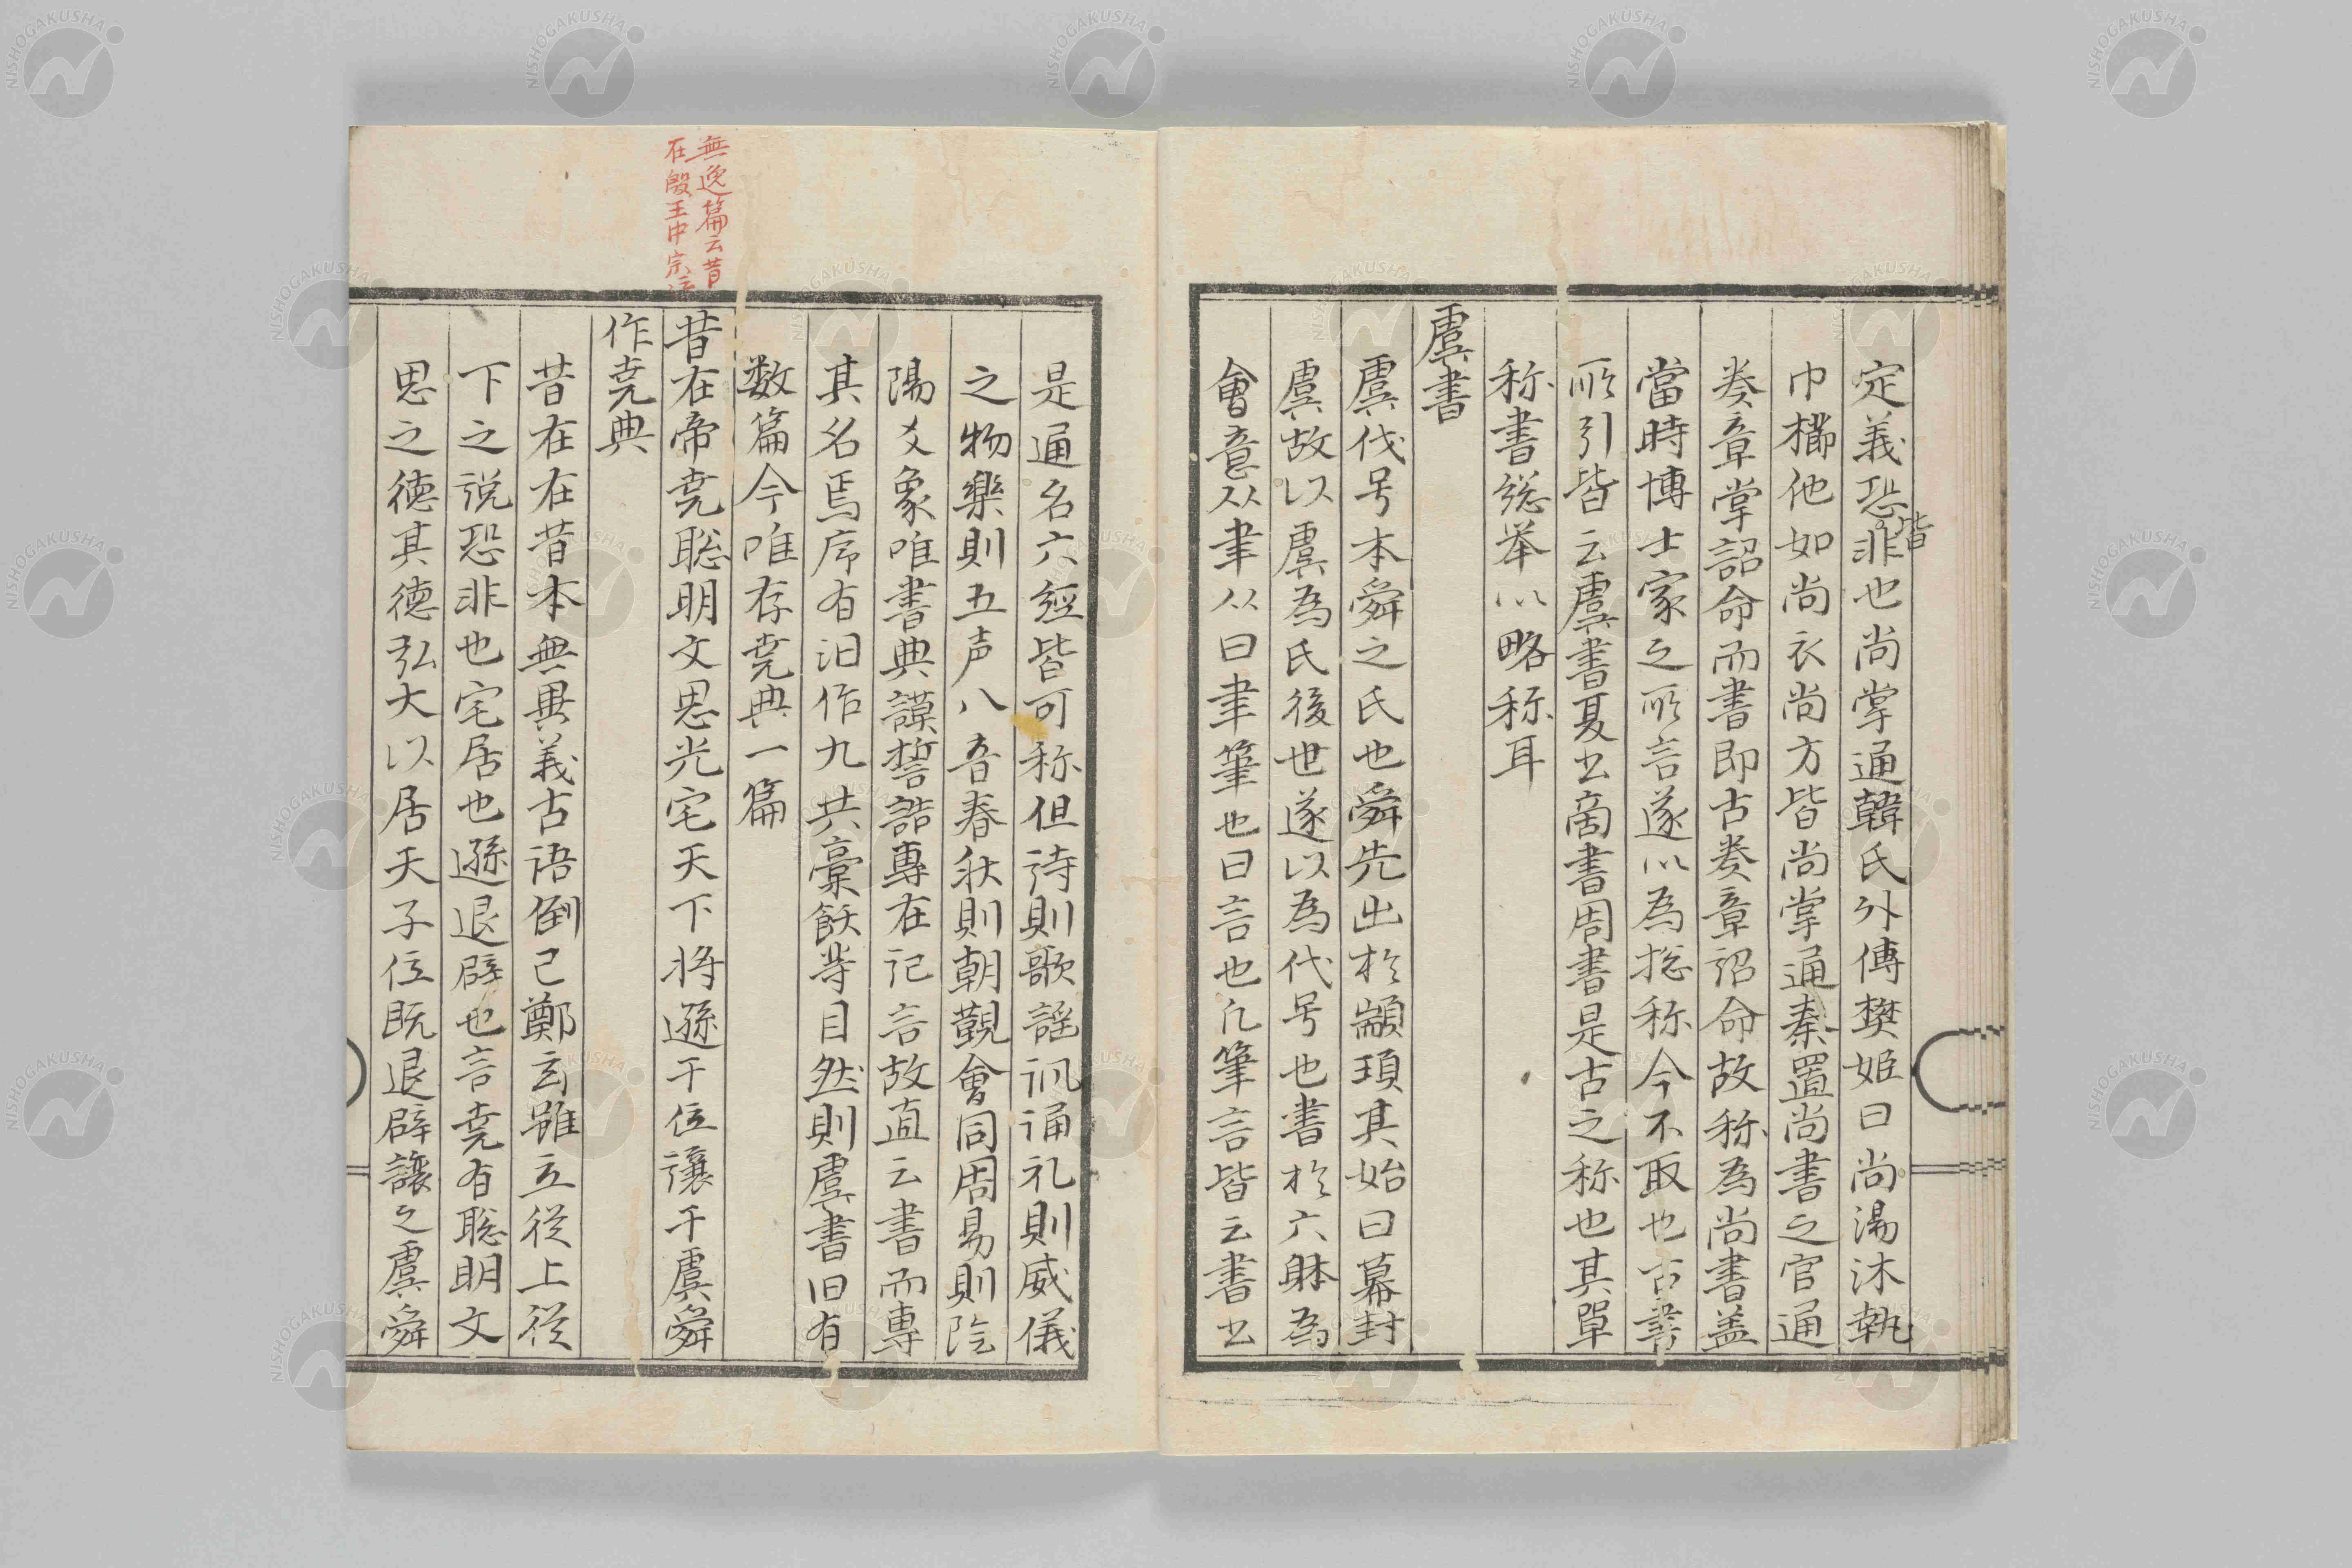 定義恐非也尚掌通韓氏外傳樊姬曰尚湯沐執
皆
巾櫛他如尚衣尚方皆尚掌通秦置尚書之官通
奏章掌詔命而書即古奏章詔命故称為尚書盖
當時博士家之所言遂以為捴称今不取也古書
所引皆云虞書夏书商書周書是古之称也其單
称書総举以略称耳
虞書
虞伐号本舜之氏也舜先出於顓頊其始曰幕封
虞故以虞為氏後世遂以為代号也書於六躰為
會意从聿从曰聿筆也曰言也凡筆言皆云書书
無逸篇云昔
在殷王中宗
是通名六經皆可称但詩則歌謡訊诵礼則威儀
之物樂則五声八音春秋則朝覲會同周易則陰
陽爻象唯書典謨誓誥專在记言故直云書而專
其名焉序有汨作九共槀飫等目然則虞書旧有
数篇今唯存堯典一篇
昔在帝堯聡明文思光宅天下将遜于位讓于虞舜
作堯典
昔在在昔本無異義古语倒已鄭玄雖立従上従
下之説恐非也宅居也遜退辟也言堯有聡明文
思之徳其徳弘大以居天子位既退辟讓之虞舜
NISHOGAKUSHA